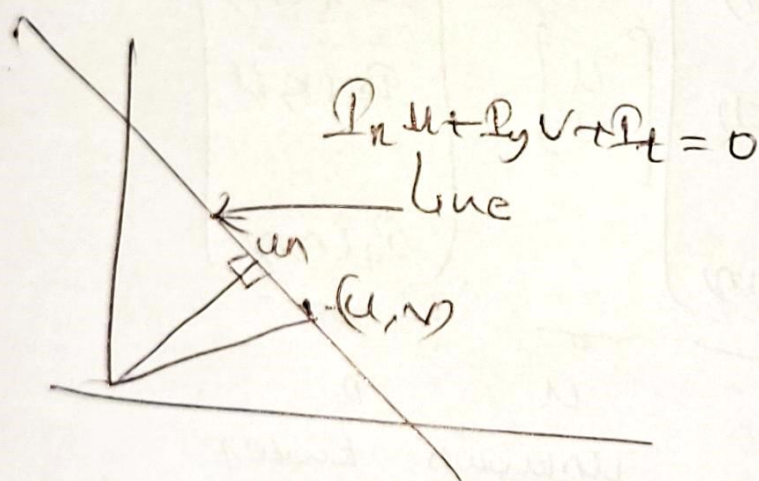 Ix u + Iy v + It = 0
Line
un
(u, v)